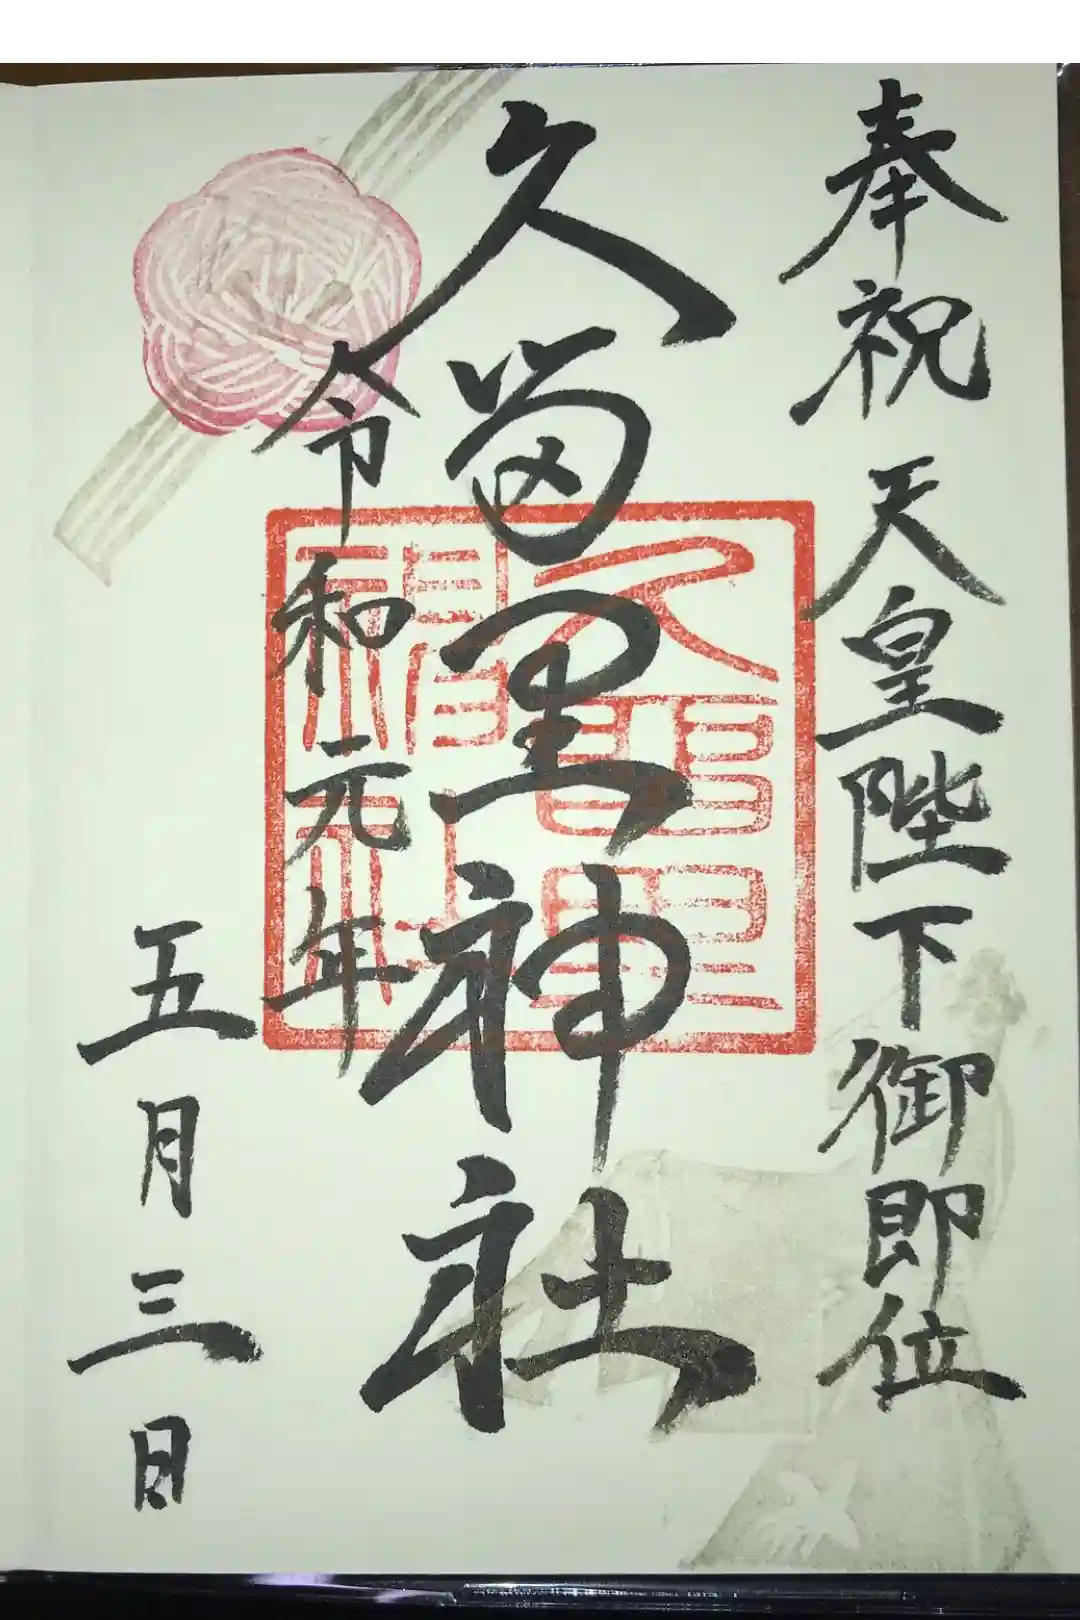 奉祝 天皇陛下御即位
久留里神社
令和元年
五月三日
久留里
神社